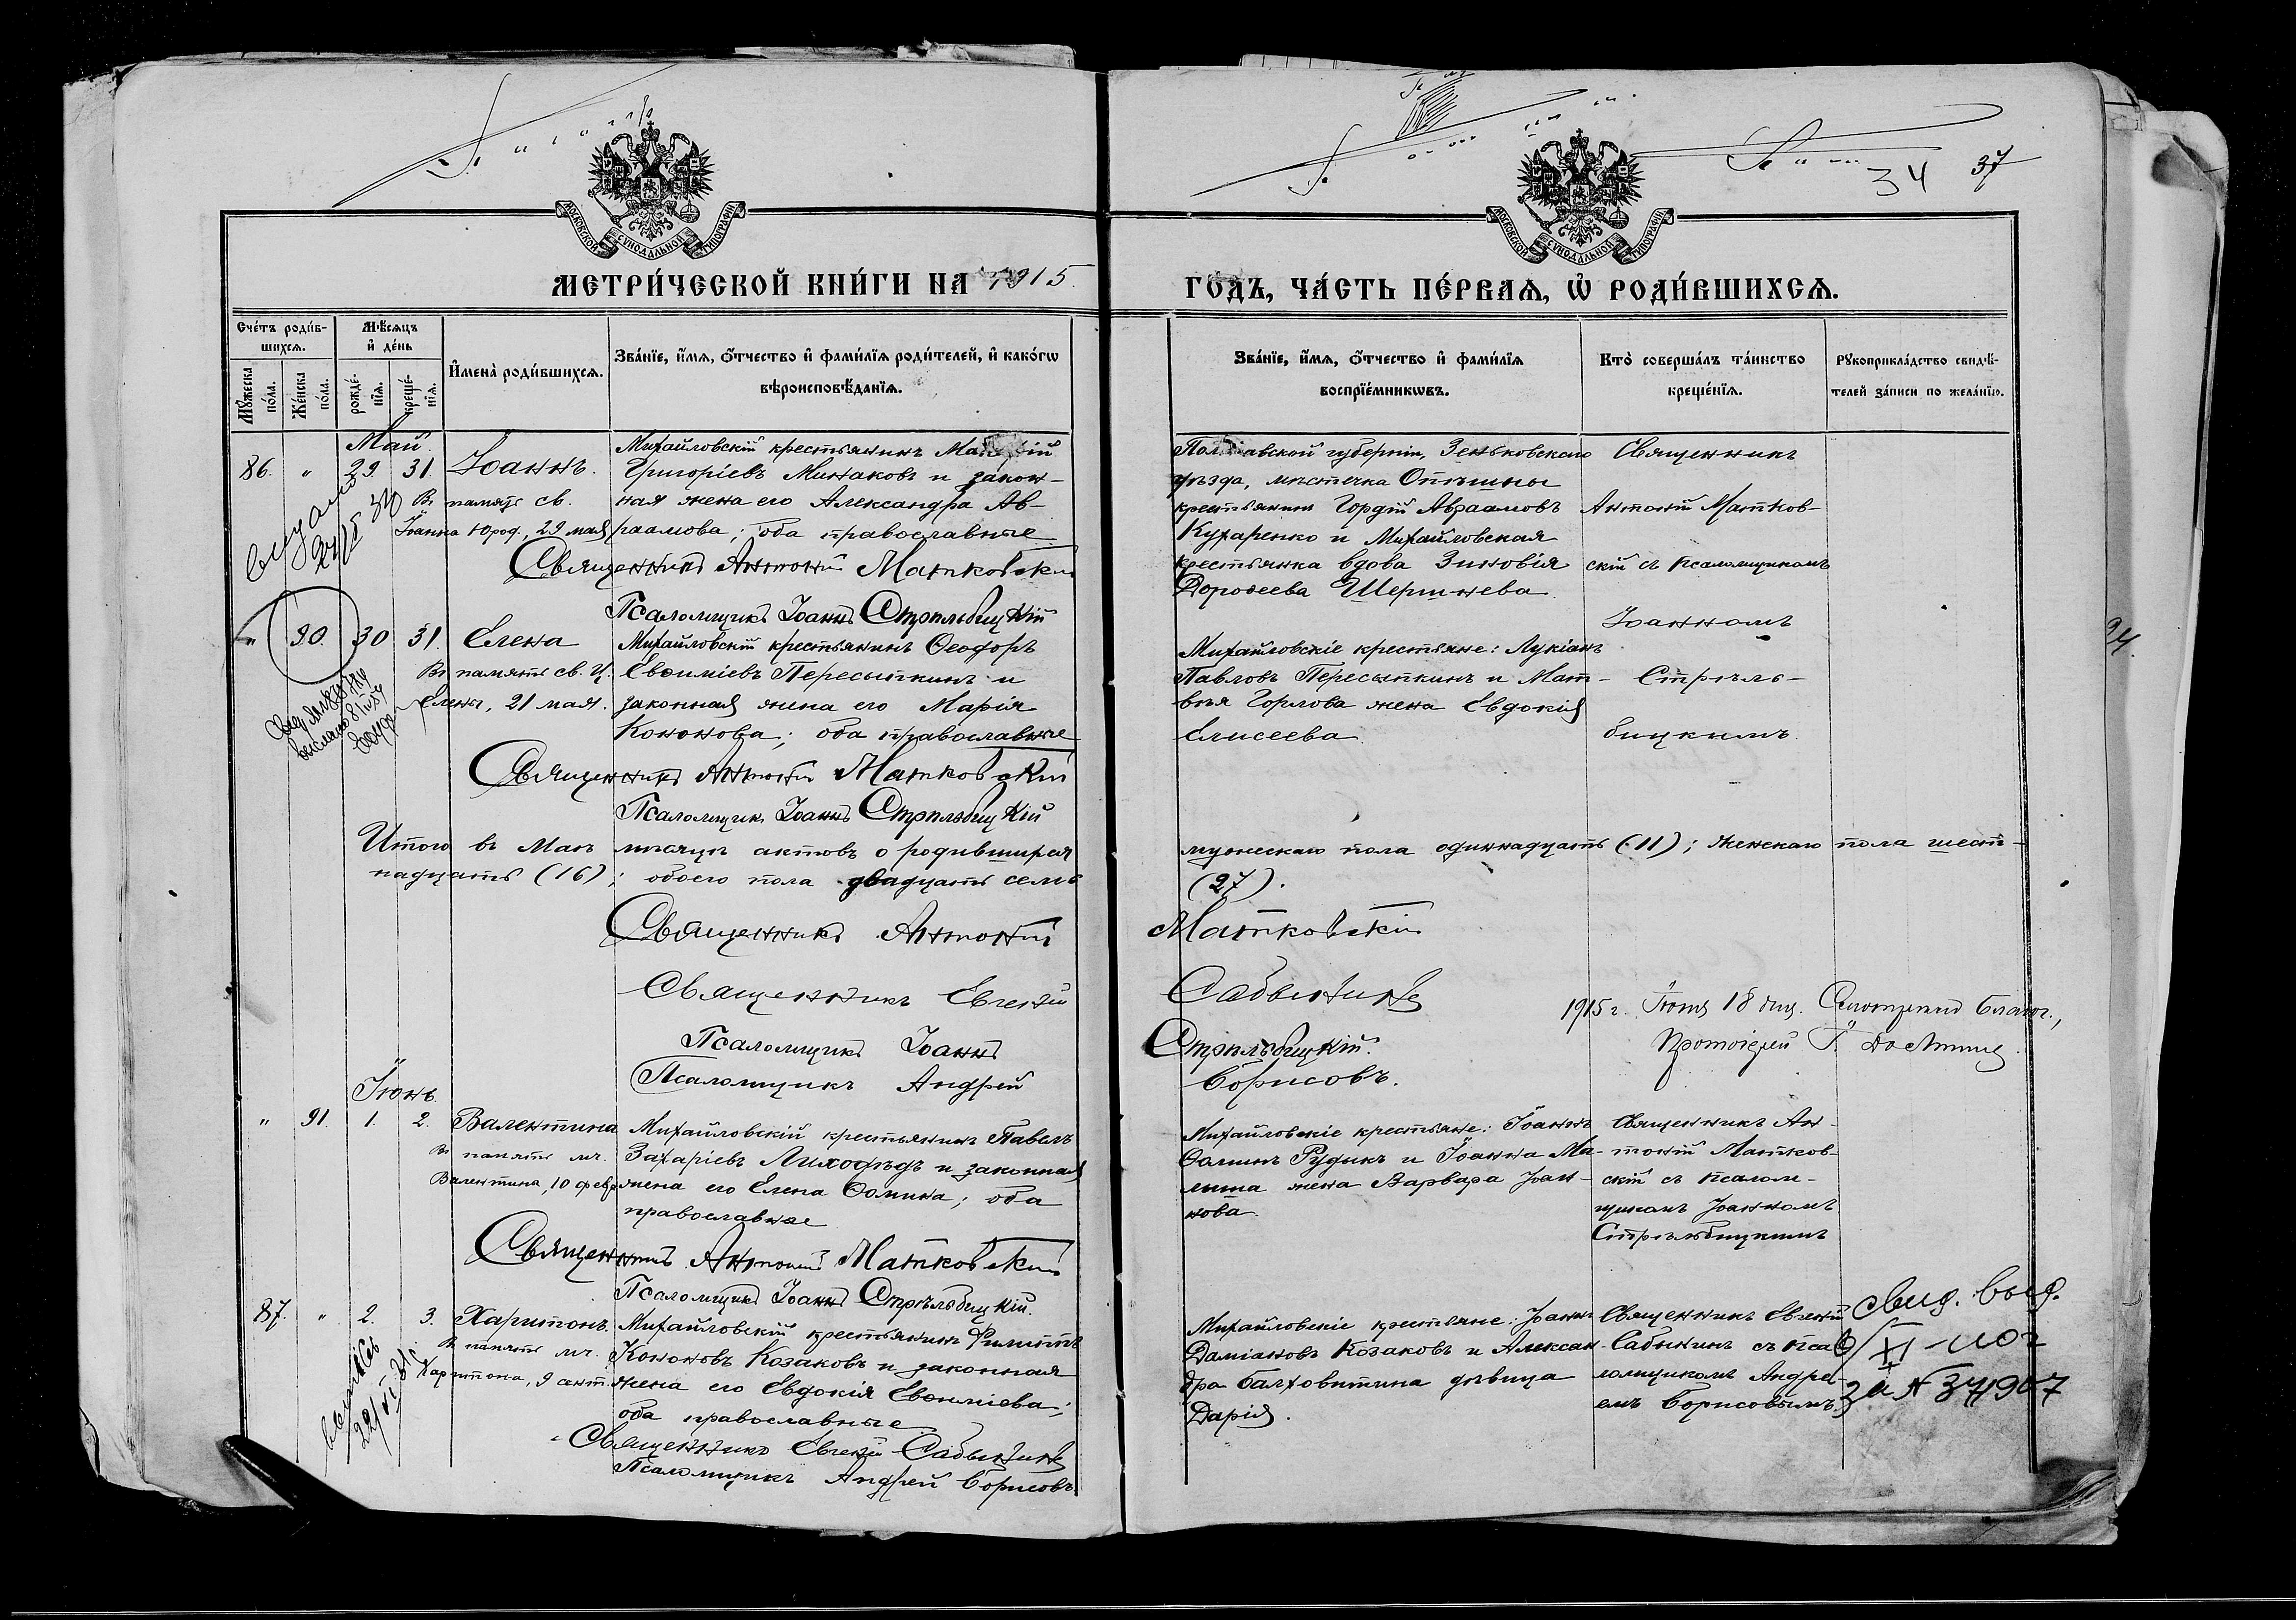 34 37
МОСКОВСКОЙ СѴНОДАЛЬНОЙ ТИПОГРАФІИ
МОСКОВСКОЙ СѴНОДАЛЬНОЙ ТИПОГРАФІИ
МЕТРИ́ЧЕСКОЙ КНИ́ГИ НА 1915
ГО́ДЪ, ЧА́СТЬ ПЕ́РВАѦ, Ѡ҆ РОДИ́ВШИХСѦ.
Сче́тъ роди́в-
шихсѧ.
Мѣ́сѧцъ
и҆ де́нь
Мꙋ́жеска
по́ла.
Же́нска
по́ла.
рожде́-
нїѧ.
креще́-
нїѧ.
И҆мена̀ роди́вшихсѧ.
Зва́нїе, и҆́мѧ, ѻ҆́тчество и҆ фами́лїѧ роди́телей, и҆ како́гѡ
вѣроисповѣ́данїѧ.
Зва́нїе, и҆́мѧ, ѻ҆́тчество и҆ фами́лїѧ
воспрїе́мникѡвъ.
Кто̀ соверша́лъ та́инство
креще́нїѧ.
Рꙋкоприкла́дство свидѣ́-
телей за́писи по жела́нїю.
Май.
86. " 29 31. Іоаннъ.
Въ память св.
Іоанна Юрод., 29 мая
Михайловскій крестьянинъ
Григоріевъ Минаковъ и закон-
ная жена его Александра Ав-
раамова; оба православные
Священникъ Антоній Матковскій
Псаломщикъ Іоаннъ Стрѣльбицкій
Полтавской губерніи, Зеньковскаго
уѣзда, мѣстечка Опошны
крестьянинъ Гордій Авраамовъ
Кухаренко и Михайловская
крестьянка вдова Зиновія
Дороѳеева Шершнева.
Священникъ
Антоній Матков-
скій съ псаломщикомъ
Іоанномъ
Стрѣль-
бицкимъ.
" 90. 30 31. Елена
Въ память св. Ц.
Елены, 21 мая.
Михайловскій крестьянинъ Ѳеодоръ
Евѳиміевъ Пересыпкинъ и
законная жена его Марія
Кононова; оба православные
Священникъ Антоній Матковскій
Псаломщикъ Іоаннъ Стрѣльбицкій
Михайловскіе крестьяне: Лукіанъ
Павловъ Пересыпкинъ и Мат-
вѣя Горлова жена Евдокія
Елисеева.
Итого въ Маѣ мѣсяцѣ актовъ о родившихся мужескаго пола одиннадцать (11); женскаго пола шест-
надцать (16); обоего пола двадцать семь (27).
Священникъ Антоній Матковскій
Священникъ Евгеній Сабынинъ
Псаломщикъ Іоаннъ Стрѣльбицкій.
Псаломщикъ Андрей Борисовъ.
1915 г. Іюня 18 дня.
Протоіерей
Іюнь.
" 91. 1. 2. Валентина
Въ память мч.
Валентина, 10 февр.
Михайловскій крестьянинъ Павелъ
Захаріевъ Лиходѣдъ и законная
жена его Елена Ѳомина; оба
православные
Священникъ Антоній Матковскій
Псаломщикъ Іоаннъ Стрѣльбицкій.
Михайловскіе крестьяне: Іоаннъ
Ѳоминъ Рудыкъ и Іоанна
жена Варвара Іоан-
нова.
Священникъ Ан-
тоній Матков-
скій съ псалом-
щикомъ Іоанномъ
Стрѣльбицкимъ
87. " 2. 3. Харитонъ.
Въ память мч.
Харитона, 9 сент.
Михайловскій крестьянинъ Филиппъ
Кононовъ Козаковъ и законная
жена его Евдокія Евѳиміева;
оба православные
Священникъ Евгеній Сабынинъ
Псаломщикъ Андрей Борисовъ
Михайловскіе крестьяне: Іоаннъ
Даміановъ Козаковъ и Алексан-
дра Балховитина дѣвица
Дарія.
Священникъ Евгеній
Сабынинъ съ пса-
ломщикомъ Андре-
емъ Борисовымъ.
Свид. выд.